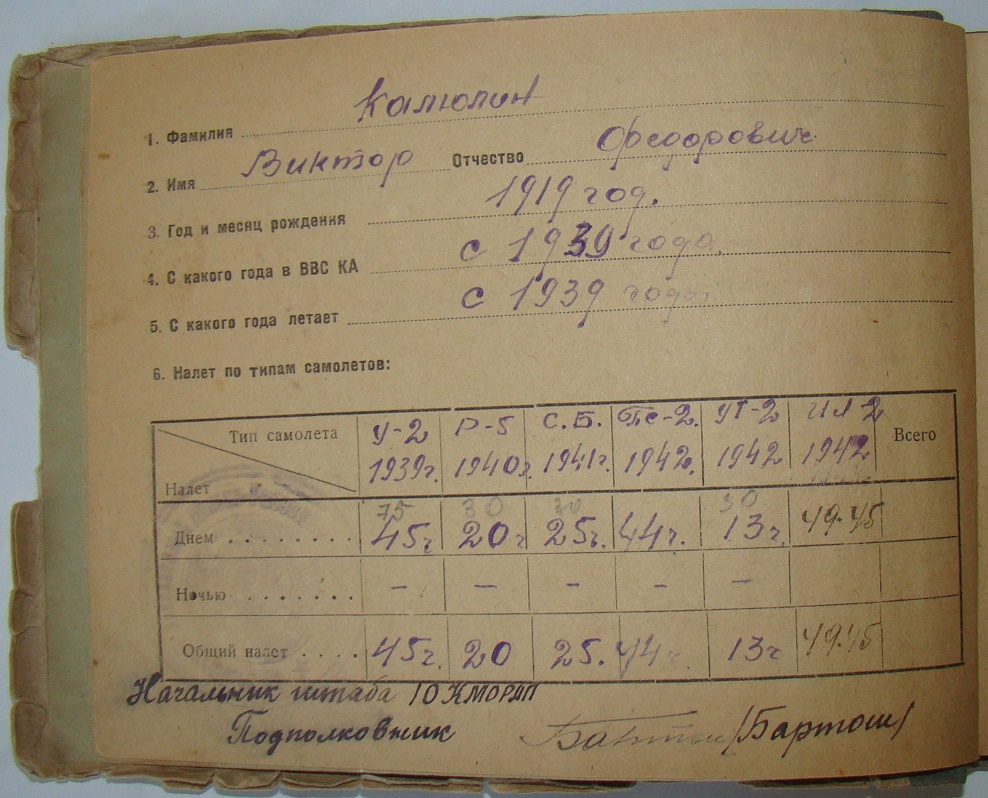 1. Фамилия Калюпин
2. Имя Виктор Отчество Федорович
3. Год и месяц рождения 1919 год.
4. С какого года в ВВС КА с 1939 года.
5. С какого года летает с 1939 года
6. Налет по типам самолетов:
Тип самолета У-2 Р-5 С.Б. Пе-2. УТ-2 Ил-2 Всего
Налет 1939г. 1940г. 1941г. 1942. 1942 1942
75 30 30
Днем ........ 45г. 20г 25г. 44г. 13г. 49.45
Ночью ....... – – – – –
Общий налет .... 45г. 20 25. 44г. 13г 49.45
Начальник штаба
Подполковник /Бартош/